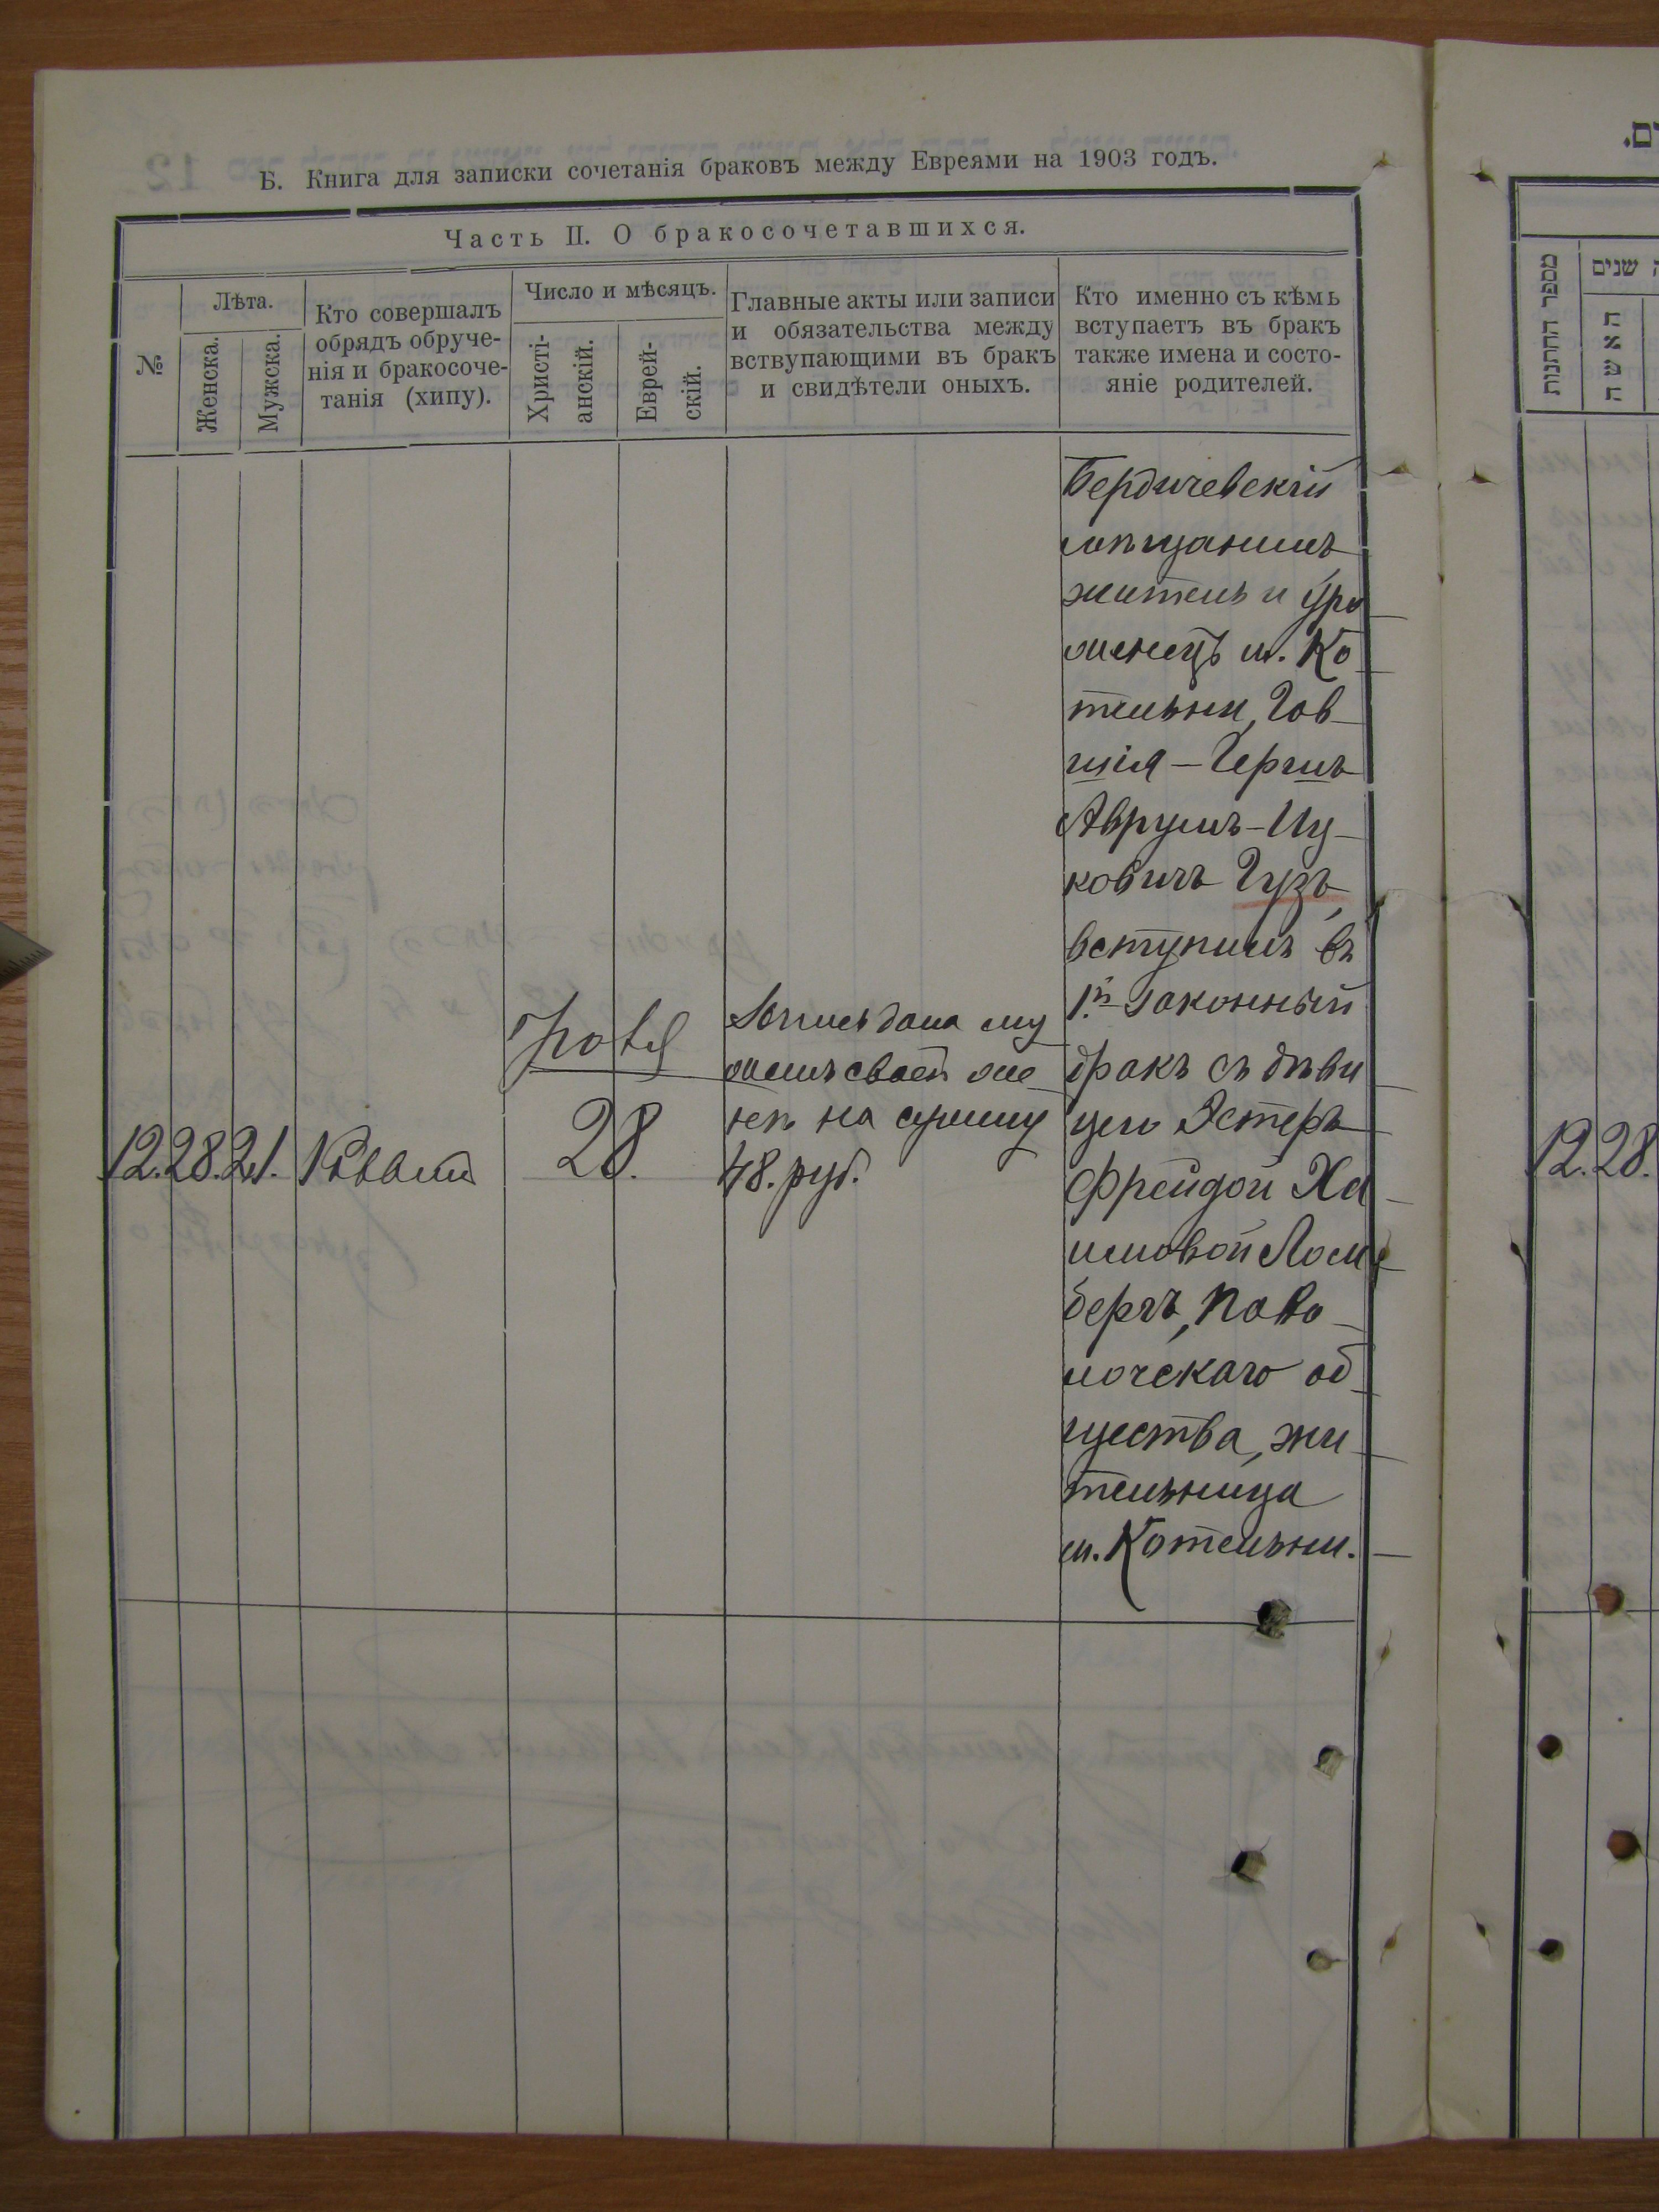 Б. Книга для записки сочетанія браковъ между Евреями на 1903 годъ.
Часть II. О бракосочетавшихся.
№
Лѣта.
Женска.
Мужска.
Кто совершалъ
обрядъ обруче-
нія и бракосоче-
танія (хипу).
Число и мѣсяцъ.
Христі-
анскій.
Еврей-
скій.
Главные акты или записи
и обязательства между
вствупающими въ бракъ
и свидѣтели оныхъ.
Кто именно съ кѣмъ
вступаетъ въ бракъ
также имена и состо-
яніе родителей.
12. 28. 21.
28.
Запись дана му
жемъ своей же
нѣ на сумму
48. руб.
Бердичевскій
мѣщанинъ
житель и уро
женецъ м. Ко
тельни, Гов
шія - Гершъ
Аврумъ-Иц-
ковичъ Гузъ,
вступилъ въ
1.й законный
бракъ съ дѣви
цею Эстеръ
Фрейдой Ха
имовой Лом
бергъ, Паво
лочскаго об
щества, жи
тельница
м. Котельни.
ם.
מספר החתנות
שנים
האשה
12. 28.